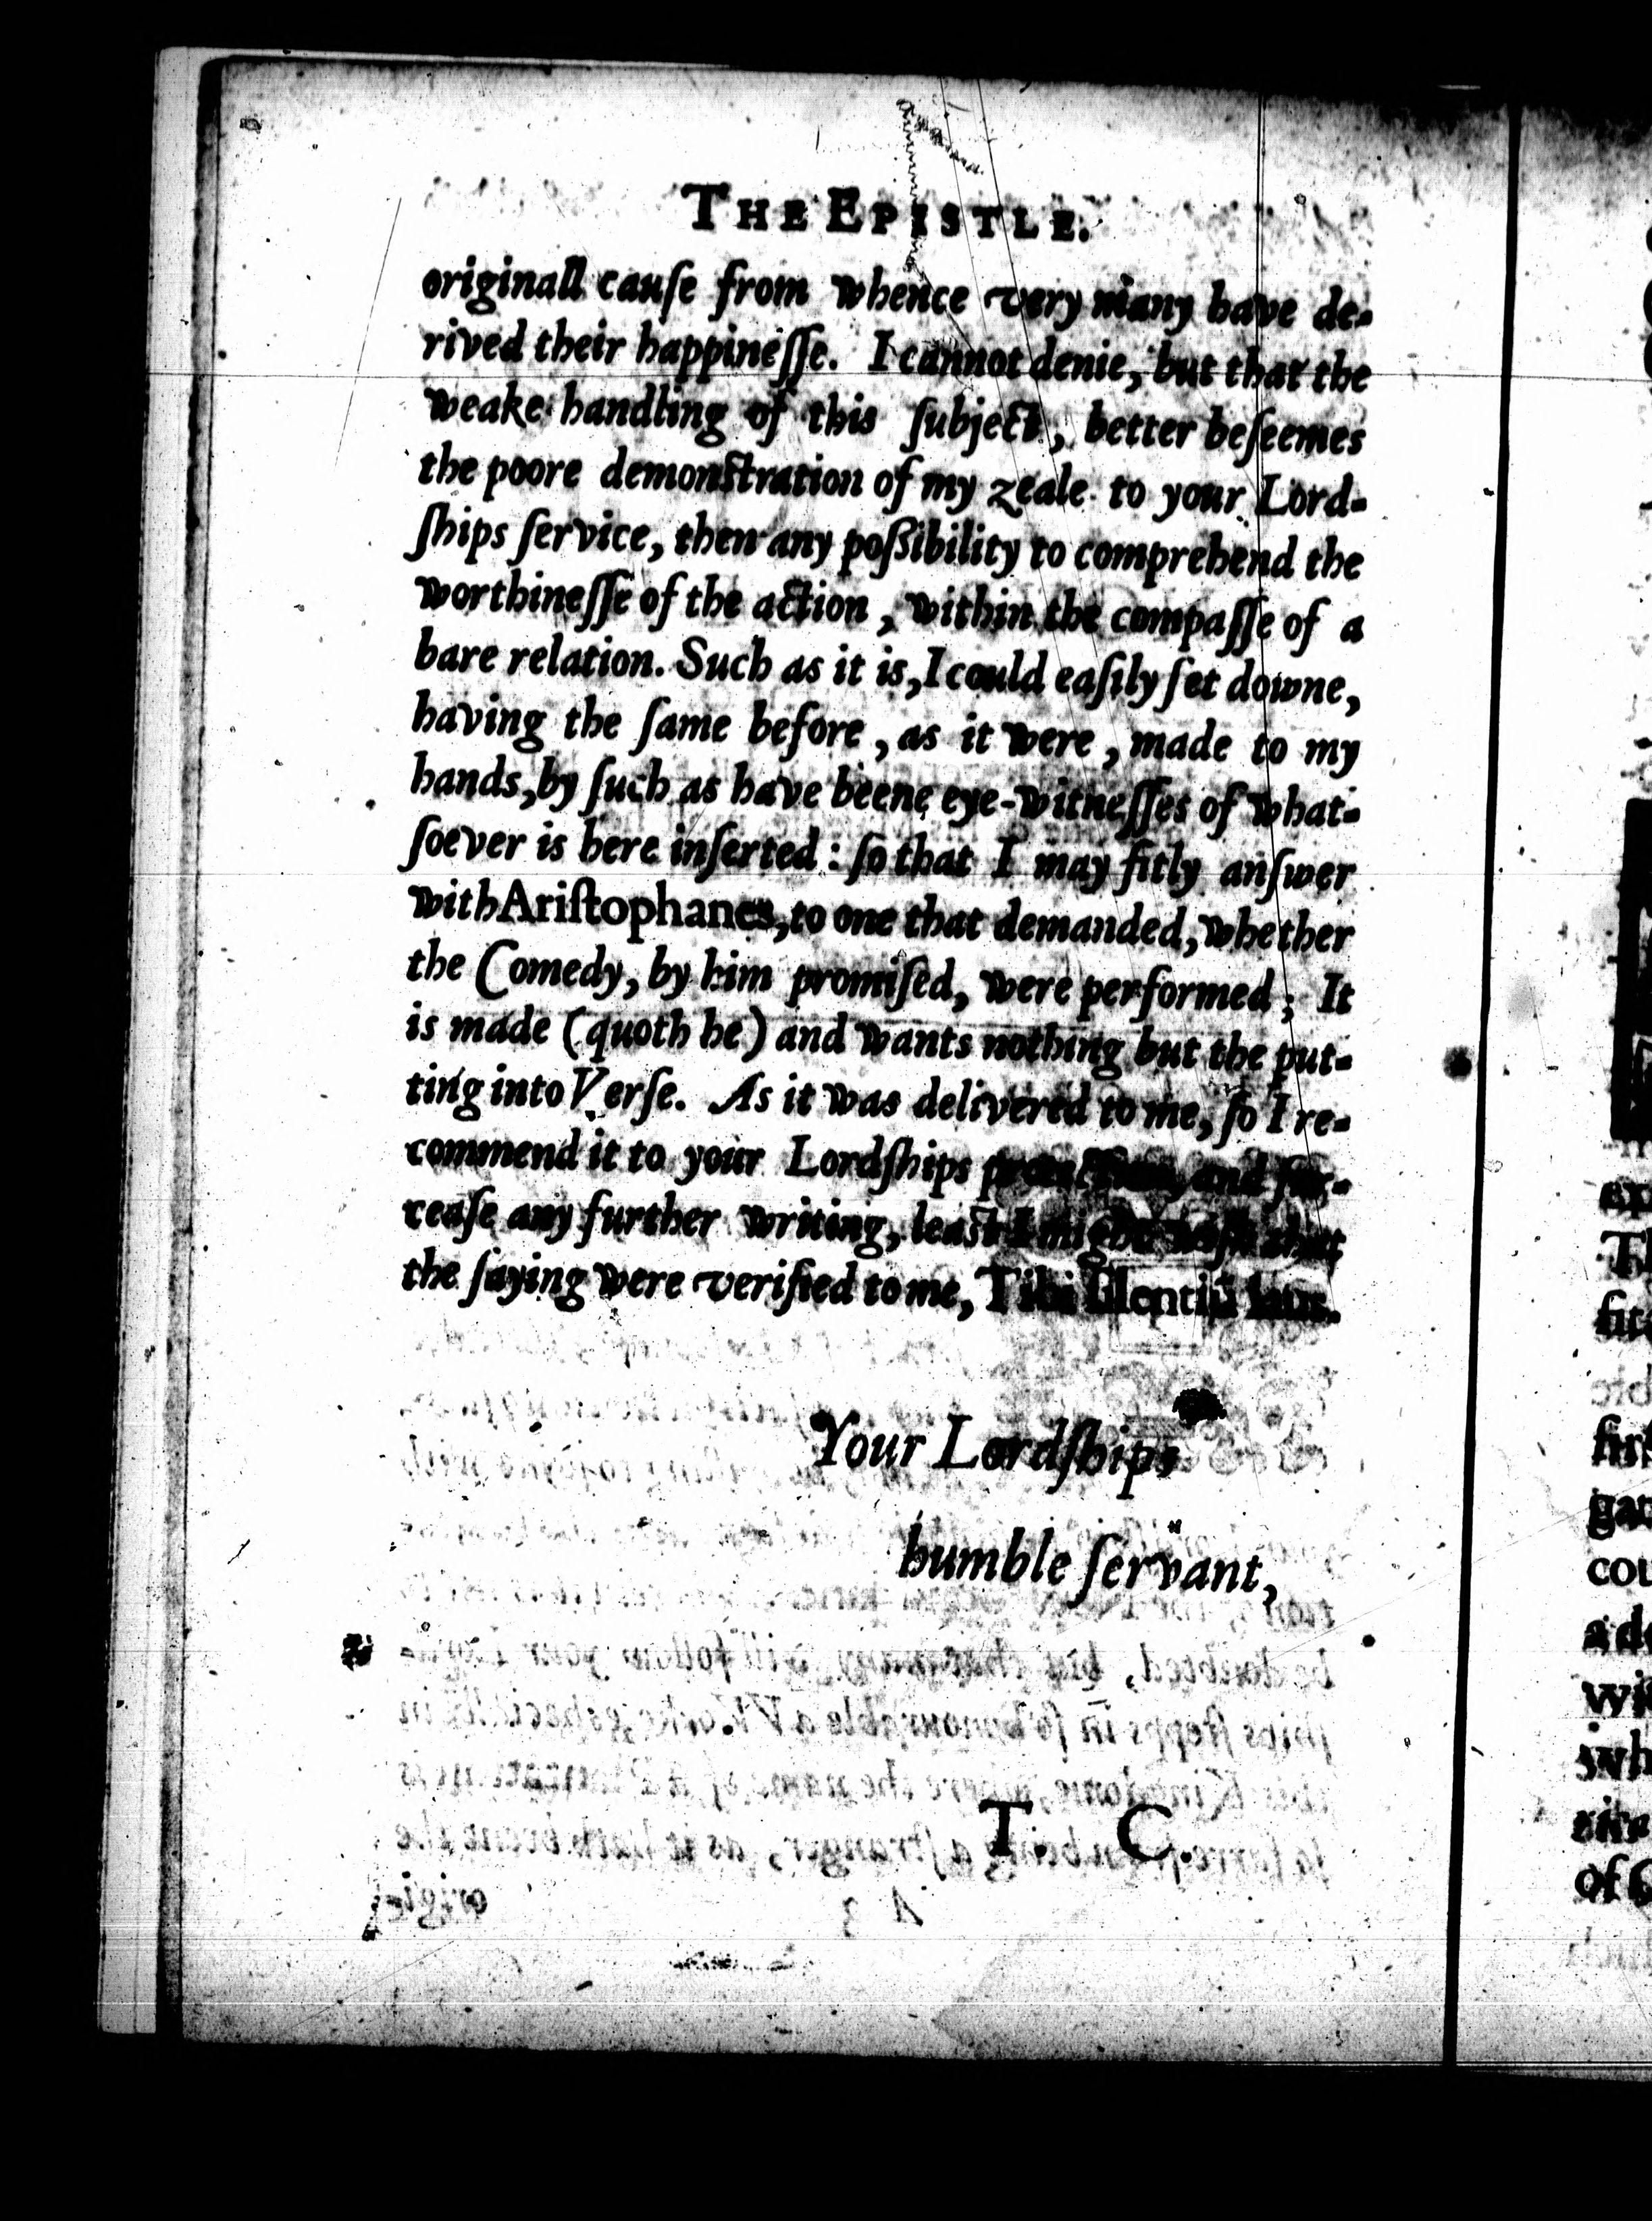 THE EPISTLE.
originall cauſe from whence very many have de-
rived their happineſſe. I cannot denie, but that the
weake handling of this ſubject, better beſeemes
the poore demonſtration of my zeale to your Lord-
ſhips ſervice, then any poſſibility to comprehend the
worthineſſe of the action, within the compaſſe of a
bare relation. Such as it is, I could eaſily ſet downe,
having the ſame before, as it were, made to my
hands, by ſuch as have beene eye-witneſſes of what-
ſoever is here inſerted: ſo that I may fitly anſwer
with Ariſtophanes, to one that demanded, whether
the Comedy, by him promiſed, were performed; It
is made (quoth he) and wants nothing but the put-
ting into Verſe. As it was delivered to me, ſo I re-
commend it to your Lordſhips protection, and ſur-
ceaſe any further writing, leaſt I might wiſh that
the ſaying were verified to me, Tibi ſilentiū laus.
Your Lordſhips
humble ſervant,
T. C.